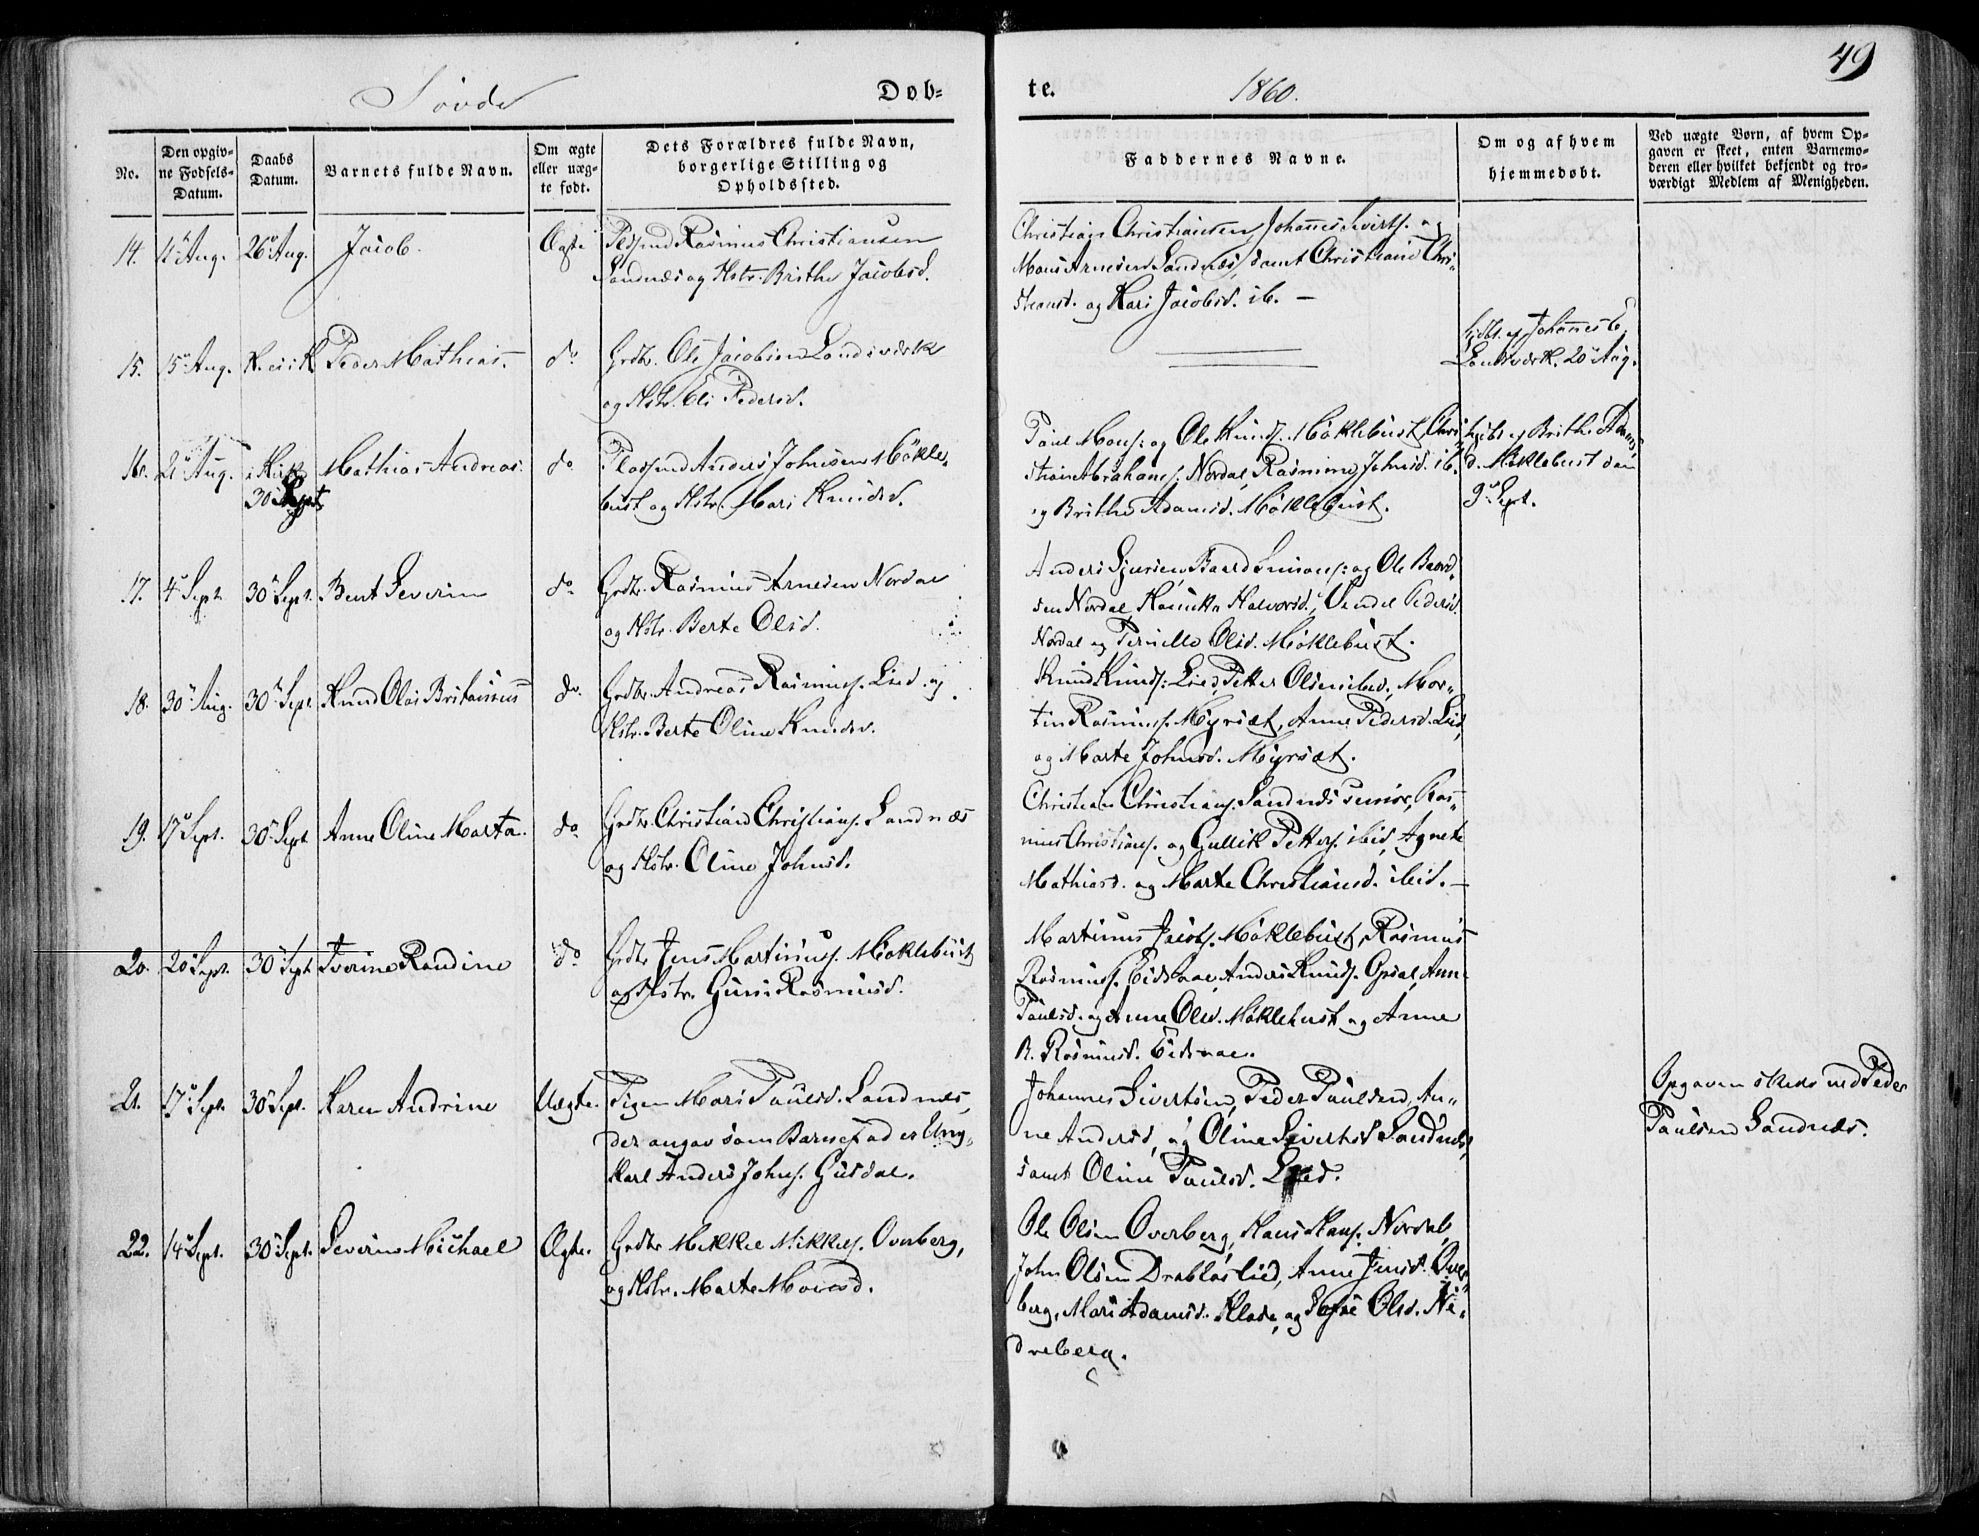 49
Søvde
Døb-
te.
1860.
No.
Den opgiv-
ne Fødsels-
Datum.
Daabs
Datum.
Barnets fulde Navn.
Om ægte
eller uæg-
te født.
Dets Forældres fulde Navn,
borgerlige Stilling og
Opholdssted.
Faddernes Navne.
Om og af hvem
hjemmedøbt.
Ved uægte Børn, af hvem Op-
gaven er skeet, enten Barnemo-
deren eller hvilket bekjendt og tro-
værdigt Medlem af Menigheden.
14. 11 Aug. 26 Aug. Jacob. Ægte
Rasmus Christiansen
Sandnæs og Hstr. Brithe Jacobsd.
Christian Christiansen, Johannes Siverts. og
Mons Arnesen Sandnæs, samt Christiane Chri-
stiansd. og Kari Jacobsd. ib. —
15. 15 Aug. Peder Mathias. do
Grdbr. Ole Jacobsen Landsværk
og Hstr. Eli Pedersd.
Hjdbt. af Johannes E.
Landsværk. 20 Aug.
16. 21 Aug. i Kirk. 30 Sept. Mathias Andreas. do
Pladsmd Anders Johnsen Møkle-
bust og Hstr. Mari Knudsd.
Paul Mons. og Ole Knuds. Møklebust, Chri-
stian Abrahams. Nordal, Rasmine Johnsd. ib.
og Brithe Adamsd. Møklebust.
hjdbt. af Brithe Adams-
d. Møklebust den
9 Sept.
17. 4 Sept. 30 Sept. Bent Severin do
Grdbr. Rasmus Arnesen Nordal
og Hstr. Berte Olsd.
Anders Baard Simons. og Ole Baard-
sen Nordal, Halvorsd., Pedersd.
Nordal og Pernille Olsd. Møklebust.
18. 30 Aug. 30 Sept. Knud Olai Britanius do.
Grdbr. Andreas Rasmus. Lied og
Hstr. Berte Oline Knudsd.
Knud Knuds. Lied, Petter Olsen ibid, Mor-
tin Rasmus. Myrsæt, Anne Pedersd. Lied,
og Marte Johnsd. Myrsæt.
19. 17 Sept. 30 Sept Anne Oline Marta. do
Grdbr. Christian Christians. Sandnæs
og Hstr. Oline Johnsd.
Christian Christians. Sandnæs senior, Ras-
mus Christians. og Gullik Petters. ibid, Agnete
Mathiasd. og Marte Christiansd. ibid. —
20. 20 Sept. 30 Sept Iverine Randine do
Grdbr Jens Martinus. Møklebust
og Hstr. Guri Rasmusd.
Martinus Jacobs. Møklebust, Rasmus
Rasmus. Eidsaae, Anders Knuds. Ann
Paulsd. og Anne Olsd. Møklebust og Anne
R. Rasmusd. Eidsaae.
21. 17 Sept. 30 Sept. Karen Andrine Uægte.
Pigen Mari Paulsd. Sandnæs,
der angav som Barnefader Ung-
karl Anders Johns. Gusdal.
Johannes Sivertsen, Peder Paulsen, An-
ne Andersd, og Oline Sivertsd Sandnæs,
samt Oline Paulsd. Lied.
Opgaven skede ved Peder
Paulsen Sandnæs.
22. 14 Sept. 30 Sept. Severin Michael Ægte.
Grdbr Mikkel Mikkels. Overberg,
og Hstr. Marte Monsd.
Ole Olsen Overberg, Hans Hans. Nordal,
John Olsen Drabløs Lied, Anne Jensd. Over-
berg, Mari Adamsd. Klade, og Olsd. Ne-
dreberg.